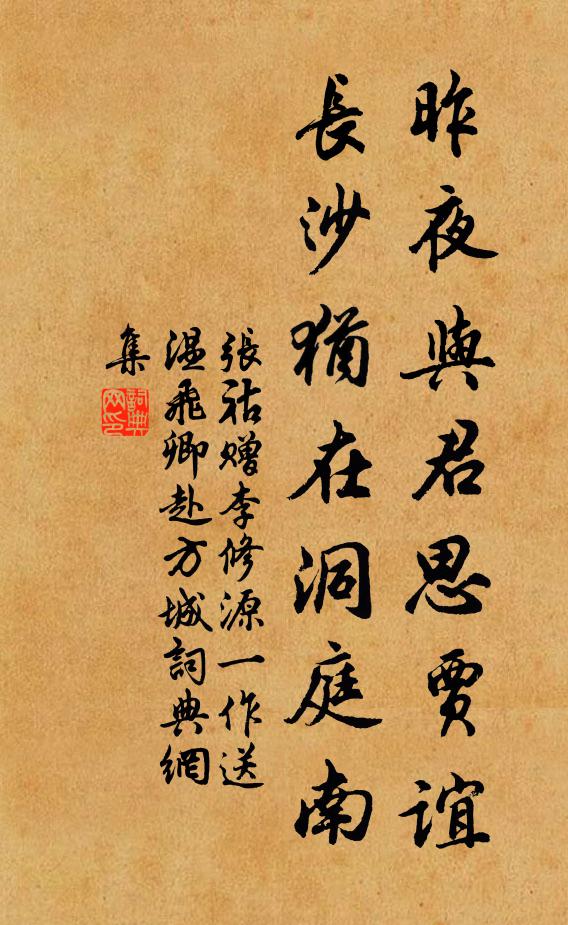 昨夜與君思賈誼
長沙猶在洞庭南
張祜赠李修源一作送
温飛卿赴方城詞典網
集
詞典
网印